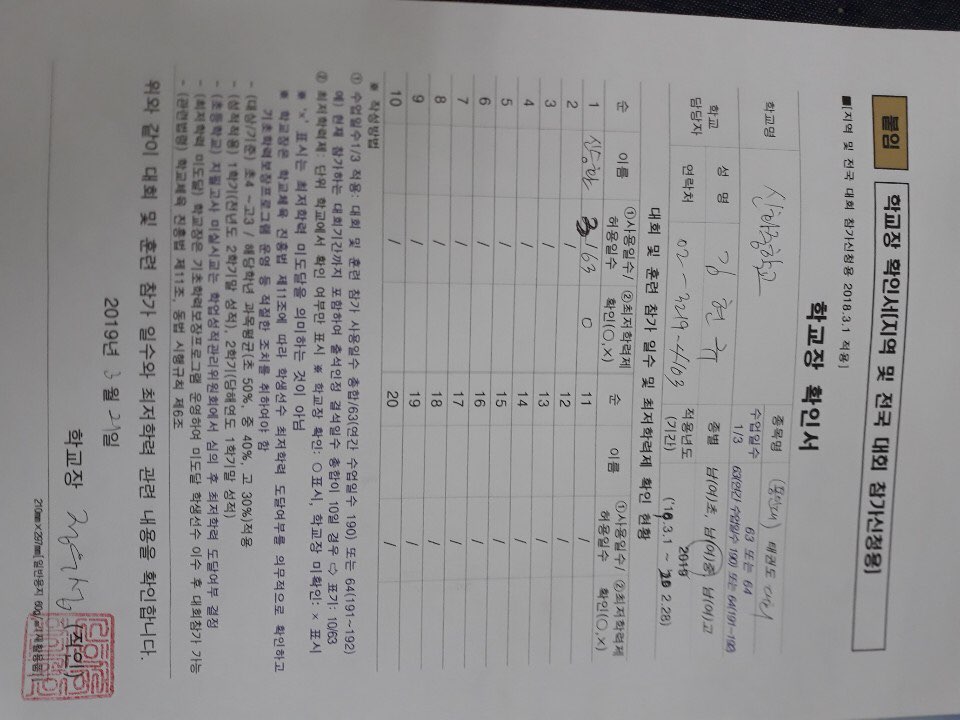 붙임
학교장 확인서[지역 및 전국 대회 참가신청용]
■[지역 및 전국 대회 참가신청용 2018.3.1 적용]
학교장 확인서
학교명 종목명 태권도
수업일수 1/3 63 또는 64
63(연간 수업일수 190) 또는 64(191~192)
학교 담당자 성 명 김현규 종별 남(여)초 남(여)중 남(여)고
연락처 02-3219-4163 적용년도 (기간) 2019 ('19.3.1 ~ '20 2.28)
대회 및 훈련 참가 일수 및 최저학력제 확인 현황
순 이름 ①사용일수/허용일수 ②최저학력제 확인(○,×) 순 이름 ①사용일수/허용일수 ②최저학력제 확인(○,×)
1 3/63 0 11 /
2 / 12 /
3 / 13 /
4 / 14 /
5 / 15 /
6 / 16 /
7 / 17 /
8 / 18 /
9 / 19 /
10 / 20 /
※ 작성방법
① 수업일수1/3 적용: 대회 및 훈련 참가 사용일수 총합/63(연간 수업일수 190) 또는 64(191~192)
예) 현재 참가하는 대회기간까지 포함하여 출석인정 결석일수 총합이 10일 경우 ⇨ 표기: 10/63
② 최저학력제: 단위 학교에서 확인 여부만 표시 ※ 학교장 확인: ○표시, 학교장 미확인: × 표시
※ '×' 표시는 최저학력 미도달을 의미하는 것이 아님
※ 학교장은 학교체육 진흥법 제11조에 따라 학생선수 최저학력 도달여부를 의무적으로 확인하고
기초학력보장프로그램 운영 등 적절한 조치를 취하여야 함
- (대상/기준) 초4 ~고3 / 해당학년 과목평균(초 50%, 중 40%, 고 30%)적용
- (성적적용) 1학기(전년도 2학기말 성적), 2학기(당해연도 1학기말 성적)
- (초등학교) 지필고사 미실시교는 학업성적관리위원회에서 심의 후 최저학력 도달여부 결정
- (최저학력 미도달) 학교장은 기초학력보장프로그램 운영하여 미도달 학생선수 이수 후 대회참가 가능
- (관련법령) 학교체육 진흥법 제11조, 동법 시행규칙 제6조
위와 같이 대회 및 훈련 참가 일수와 최저학력 관련 내용을 확인합니다.
2019년 3월 29일
학교장 (직인)
210mm×297mm[일반용지 60g/㎡(재활용품)]